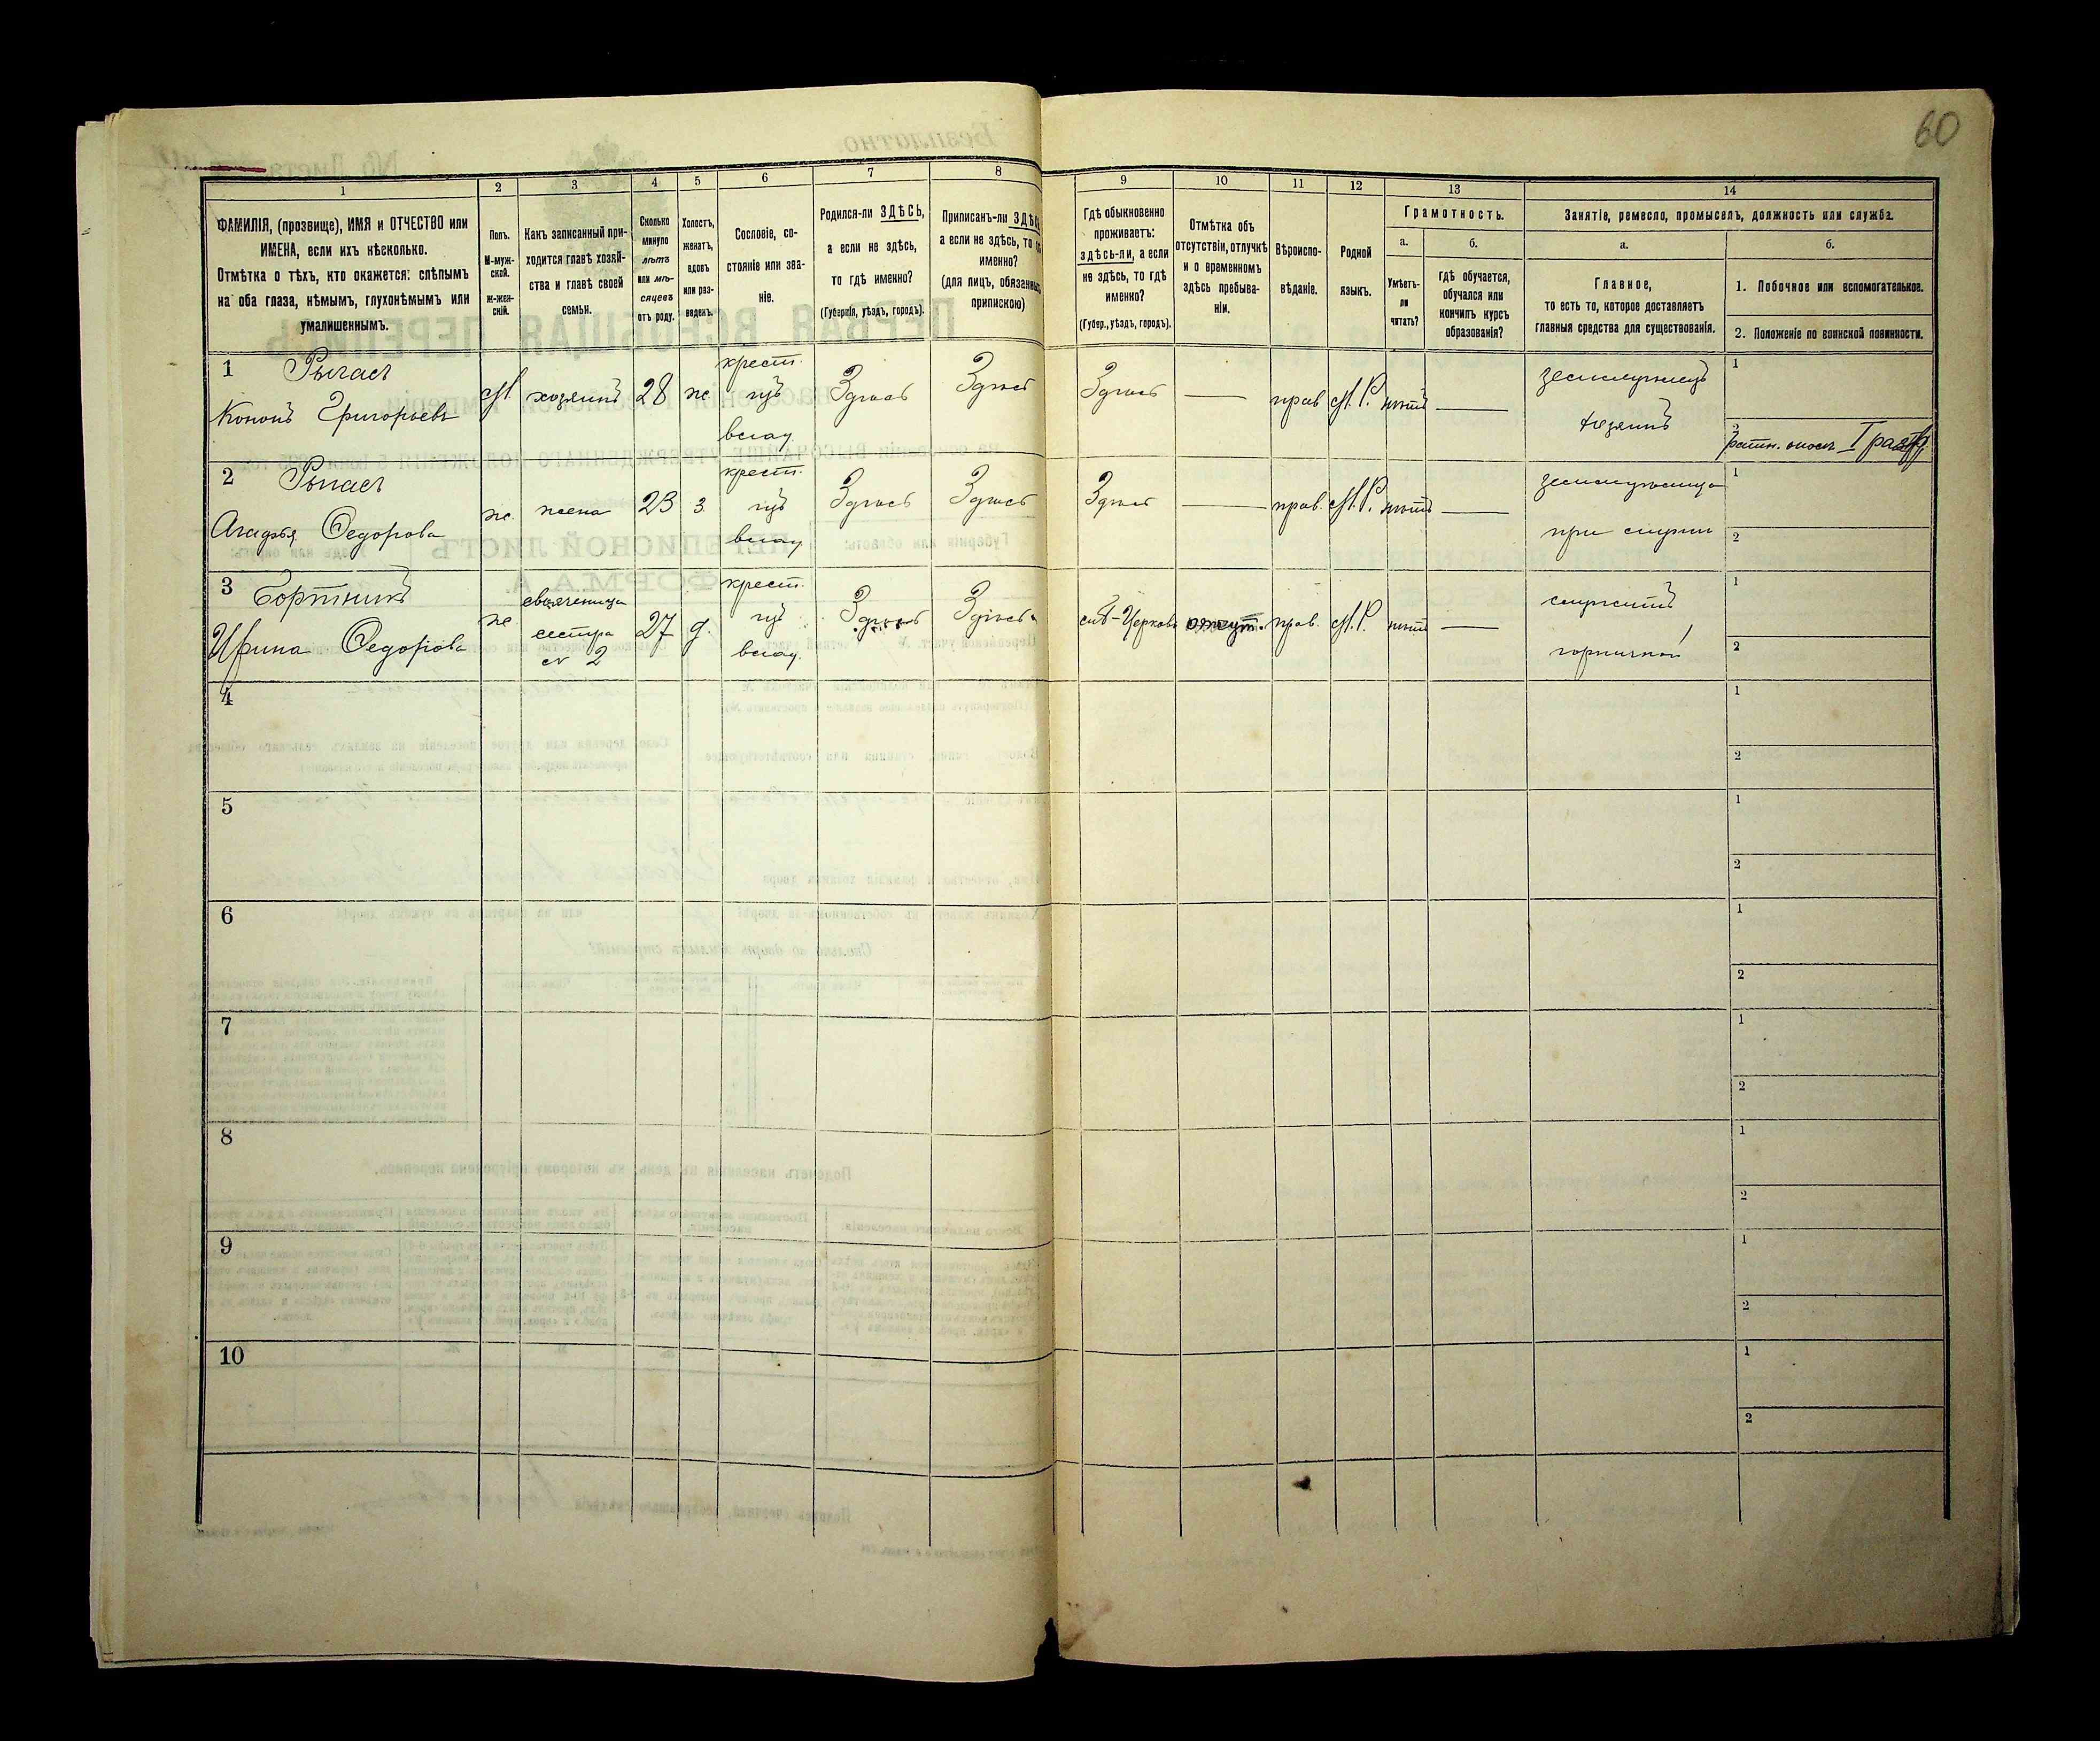 60
1
2
3
4
5
6
7
8
9
10
11
12
13
14
ФАМИЛІЯ, (прозвище), ИМЯ и ОТЧЕСТВО или
ИМЕНА, если ихъ нѣсколько.
Отмѣтка о тѣхъ, кто окажется: слѣпымъ
на оба глаза, нѣмымъ, глухонѣмымъ или
умалишеннымъ.
Полъ.
М-муж-
ской.
ж-жен-
скій.
Какъ записанный при-
ходится главѣ хозяй-
ства и главѣ своей
семьи.
Сколько
минуло
лѣтъ
или мѣ-
сяцевъ
отъ роду.
Холостъ,
женатъ,
вдовъ
или раз-
веденъ.
Сословіе, со-
стояніе или зва-
ніе.
Родился-ли ЗДѢСЬ,
а если не здѣсь,
то гдѣ именно?
(Губернія, уѣздъ, городъ).
Приписанъ-ли
а если не здѣсь, то
именно?
(для лицъ,
припискою)
Гдѣ обыкновенно
проживаетъ:
здѣсь-ли, а если
не здѣсь, то гдѣ
именно?
(Губер., уѣздъ, городъ).
Отмѣтка объ
отсутствіи, отлучкѣ
и о временномъ
здѣсь пребыва-
ніи.
Вѣроиспо-
вѣданіе.
Родной
языкъ.
Грамотность.
а.
Умѣетъ-
ли
читать?
б.
гдѣ обучается,
обучался или
кончилъ курсъ
образованія?
Занятіе, ремесло, промыселъ, должность или служба.
а.
Главное,
то есть то, которое доставляетъ
главныя средства для существованія.
б.
1. Побочное или вспомогательное.
2. Положеніе по воинской повинности.
1
Кононъ Григорьевъ
М
хозяинъ
28
ж
крест.
Здѣсь
Здѣсь
Здѣсь
—
прав
М. Р.
нѣтъ
—
хозяинъ
1
2
2
Агафья Федорова
ж
жена
23
з
крест.
Здѣсь
Здѣсь
Здѣсь
—
прав.
М. Р.
нѣтъ
—
1
2
3 Бортникъ
Ирина Федорова
ж
свояченица
сестра
№ 2
27
д.
крест.
Здѣсь
Здѣсь
прав.
М. Р.
нѣтъ
—
служитъ
горничной
1
2
4
1
2
5
1
2
6
1
2
7
1
2
8
1
2
9
1
2
10
1
2